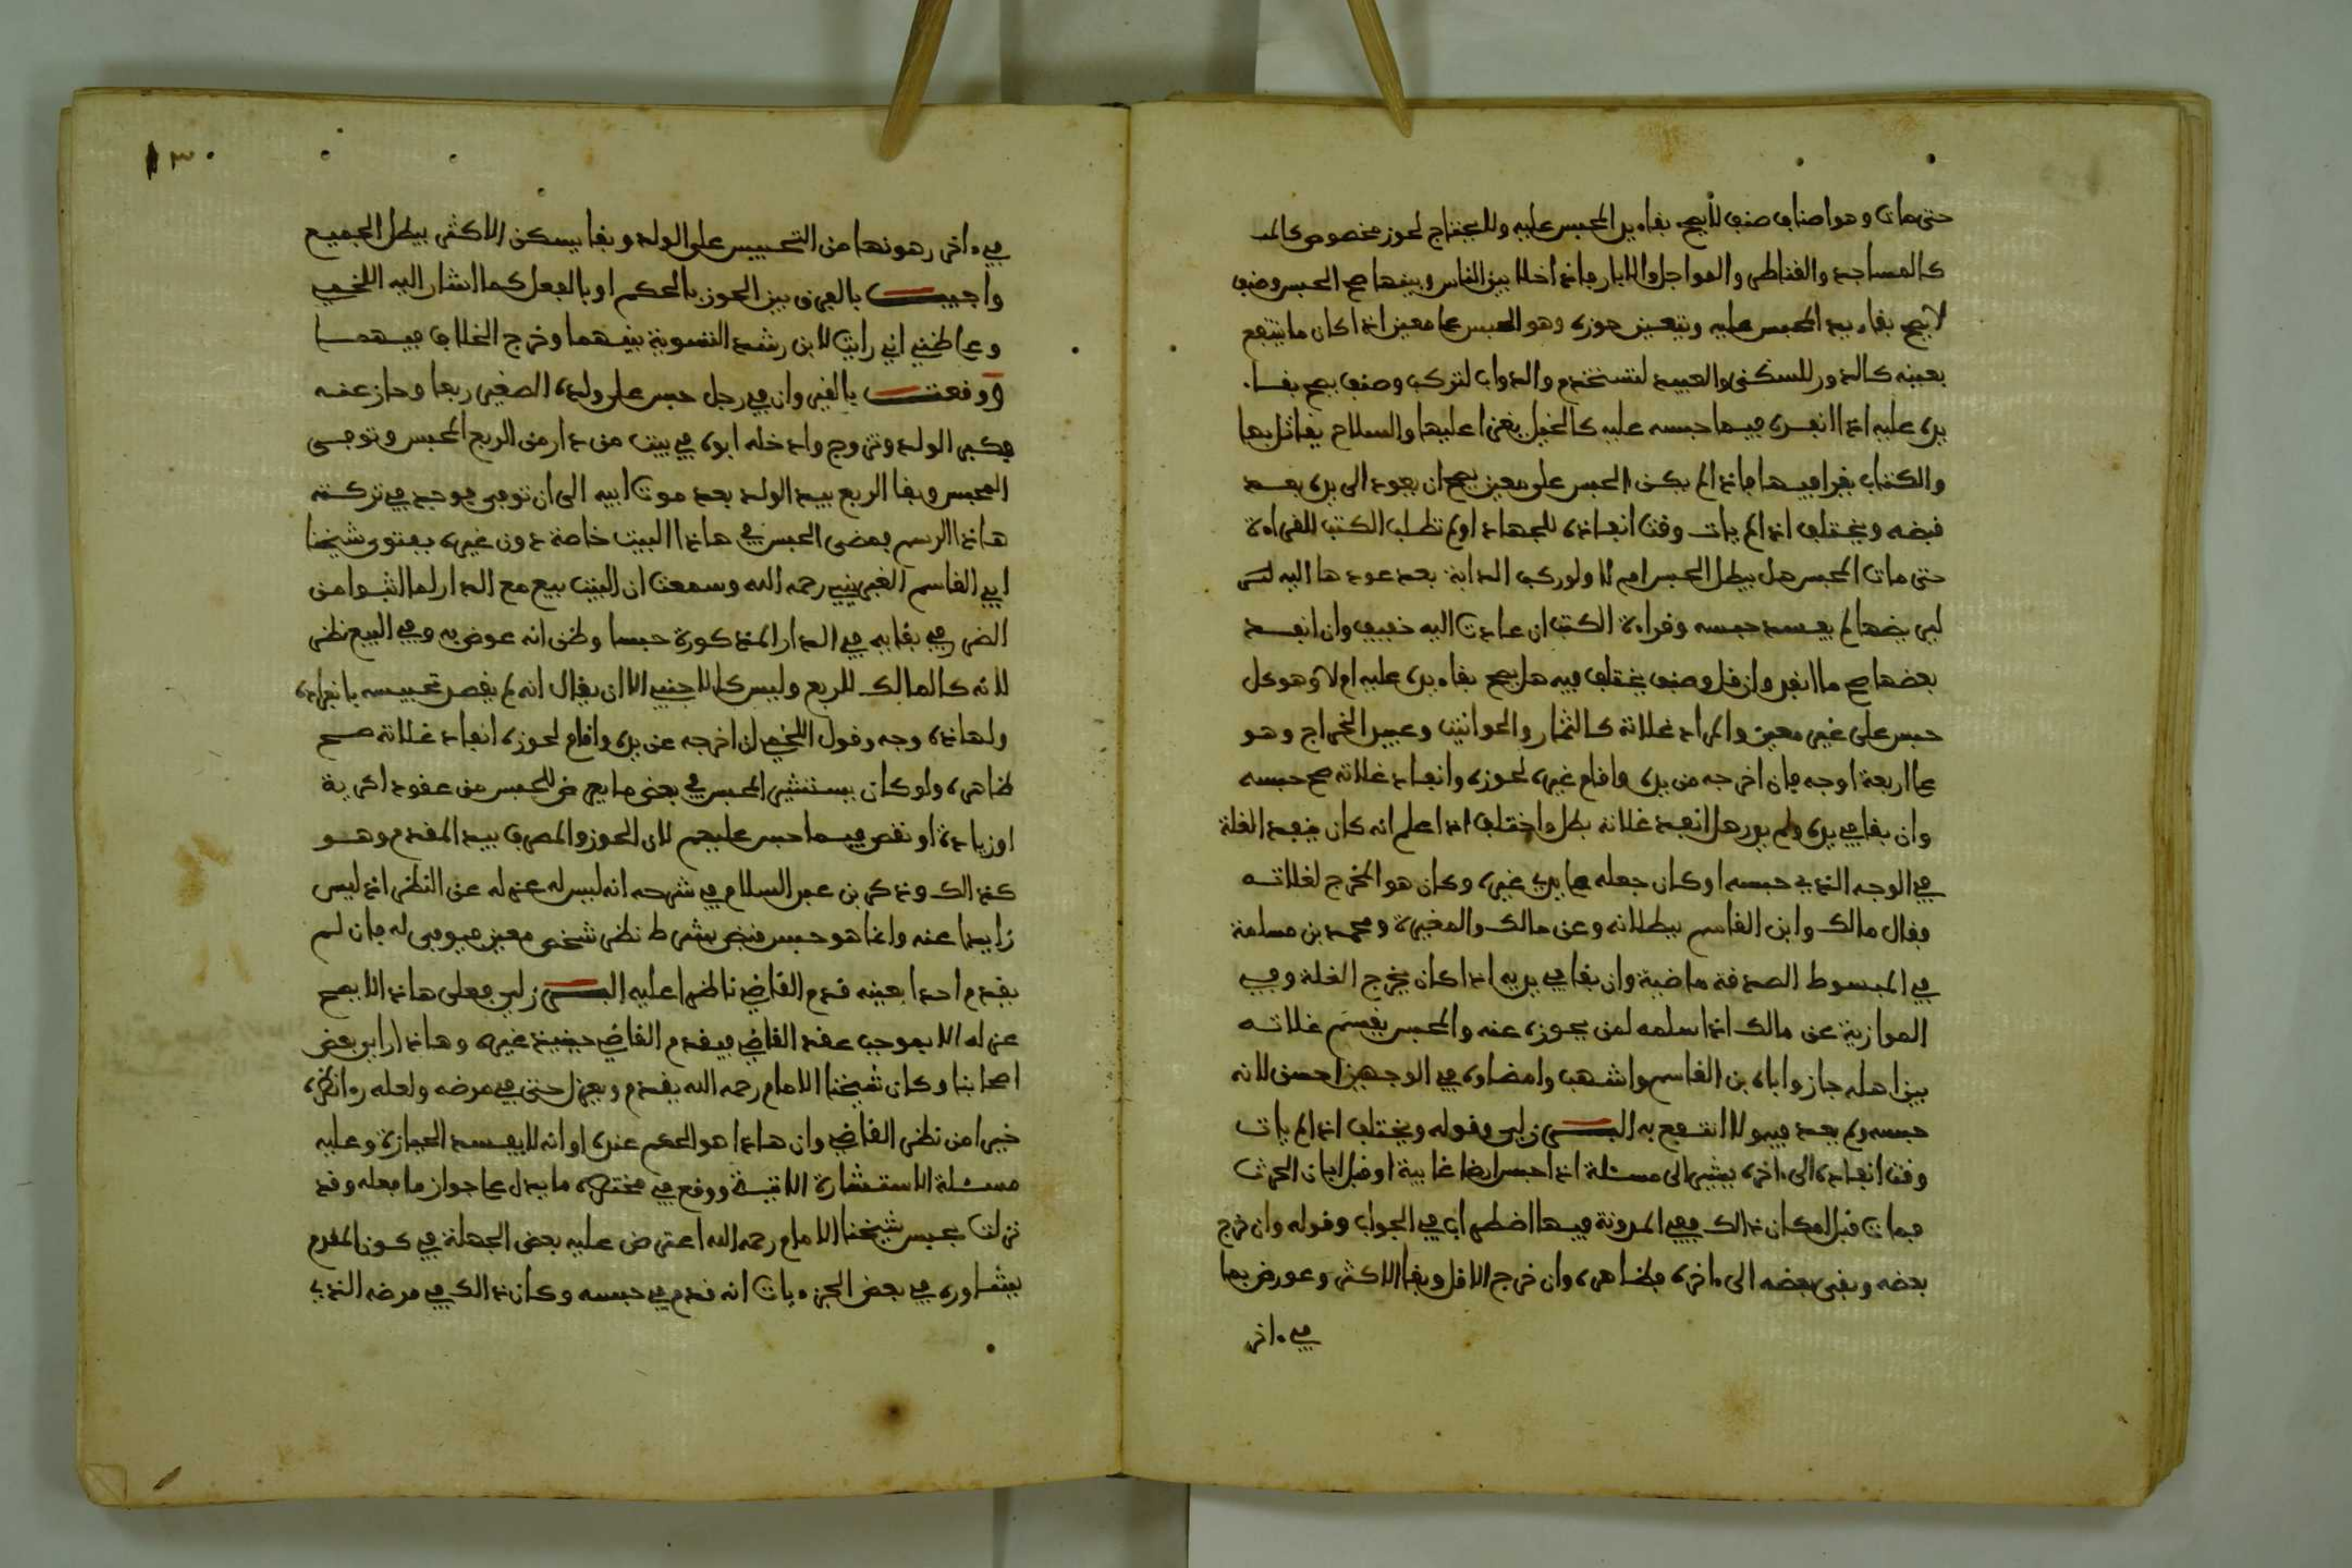 حتى مات وهو اصناف صنف لا يصح بقاء يد المحبس عليه ولا يحتاج لحوز مخصوص كالمد
كالمساجد والقناطر والمواجل والابار فاذا خلا بين الناس وبينها صح الحبس وصنف
لا يصح بقاء يد المحبس عليه ويتعين حوزه وهو الحبس على معين اذا كان ما ينتفع
بعينه كالدور للسكنى والعبيد لتستخدم والدواب لتركب وصنف يصح بقاء
يده عليه اذا انفذه فيما حبسه عليه كالخيل يغزا عليها والسلاح يقاتل بها
والكتاب يقرا فيها فاذا لم يكن الحبس على معين يصح ان يعود الى يده بعد
قبضه ويختلف اذا لم يات وقت انفاذه للجهاد او لم تطلب الكتب للقراءة
حتى مات المحبس هل يبطل الحبس ام لا ولو ركب الدابة بعد عودها اليه لكى
ليريضها لم يفسد حبسه وقراءة الكتب ان عادت اليه خفيف وان انفد
بعضها صح ما انفد وان قل وصنف يختلف فيه هل يصح بقاء يده عليه ام لا وهو كل
حبس على غير معين والمراد غلاته كالثمار والحوانيت وعبيد الخراج وهو
على اربعة اوجه فان اخرجه من يده واقام غيره لحوزه وانفاد غلاته صح حبسه
وان بقا في يده ولم يدر هل انفد غلاته بطل واختلف اذا علم انه كان ينفد الغلة
في الوجه الذي حبسه او كان جعله على يدي غيره وكان هو المخرج لغلاته
فقال مالك وابن القاسم ببطلانه وعن مالك والمغيرة ومحمد بن مسلمة
في المبسوط الصدقة ماضية وان بقا في يديه اذا كان يخرج الغلة وفي
الموازية عن مالك اذا سلمه لمن يحوزه عنه والمحبس يقسم غلاته
بين اهله جاز واباه بن القاسم واشهب وامضاوه في الوجهين احسن لانه
حبسه ولم يعد فيه ولا انتفع به البرزلي وقوله ويختلف اذا لم يات
وقت انفاده الى ءاخره يشير الى مسئلة اذا حبس ارضا غايبة او قبل ابان الحرث
فمات قبل امكان ذالك ففي المدونة فيها اضطراب في الجواب وقوله وان خرج
بعضه وبقي بعضه الى ءاخره فظاهره وان خرج الاقل وبقا الاكثر وعورض بما
في ءاخر
١٣٠
في ءاخر رهونها من التحبيس على الولد وبقا يسكن الاكثر يبطل الجميع
واجيب بالفرق بين الحوز بالحكم او بالفعل كما اشار اليه اللخمي
وعلى ظني اني رايت لابن رشد التسوية بينهما وخرج الخلاف فيهما
ووقعت بالقيروان في رجل حبس على ولده الصغير ربعا وحاز عنه
فكبر الولد وتزوج وادخله ابوه في بيت من دار من الربع المحبس وتوفى
المحبس وبقا الربع بيد الولد بعد موت ابيه الى ان توفى فوجد في تركته
هاذا الرسم فمضى الحبس في هاذا البيت خاصة دون غيره بفتوى شيخنا
ابي القاسم الغبريني رحمه الله وسمعت ان البيت بيع مع الدار لما اثبتوا من
الضرر في بقايه في الدار المذكورة حبسا وظنى انه عوض به وفي البيع نظر
لانه كالمالك للربع وليس كالاجنبي الا ان يقال انه لم يقصد تحبيسه بانفراده
ولهاذه وجه وقول اللخمي ان اخرجه عن يده واقام لحوزه انفاد غلاته صح
ظاهره ولو كان يستشير المحبس في بعض ما يعرض للحبس من عقود اكرية
او زيادة او نقص فيما حبس عليهم لان الحوز والمصرف بيد المقدم وهو
كذالك وذكر بن عبد السلام في شرحه انه ليس له عزله عن النظر اذ ليس
زايدا عنه وانما هو حبس منجز بشرط نظر شخص معين فيوفى له فان لم
يقدم احدا بعينه قدم القاضي ناظرا عليه البرزلي فعلى هاذا لا يصح
عزله الا بموجب عند القاضي فيقدم القاضي حينيذ غيره وهاذا راى بعض
اصحابنا وكان شيخنا الامام رحمه الله يقدم ويعزل حتى في مرضه ولعله رءا نظره
خيرا من نظر القاضي وان هاذا هو الحكم عنده او انه لا يفسد الحيازة وعليه
مسئلة الاستشارة الاتية ووقع في مختصره ما يدل على جواز ما فعله وقد
نزلت بحبس شيخنا الامام رحمه الله اعترض عليه بعض الجهلة في كون المقدم
يشاوره في بعض الجزءيات انه قدم في حبسه وكان ذالك في مرضه الذي